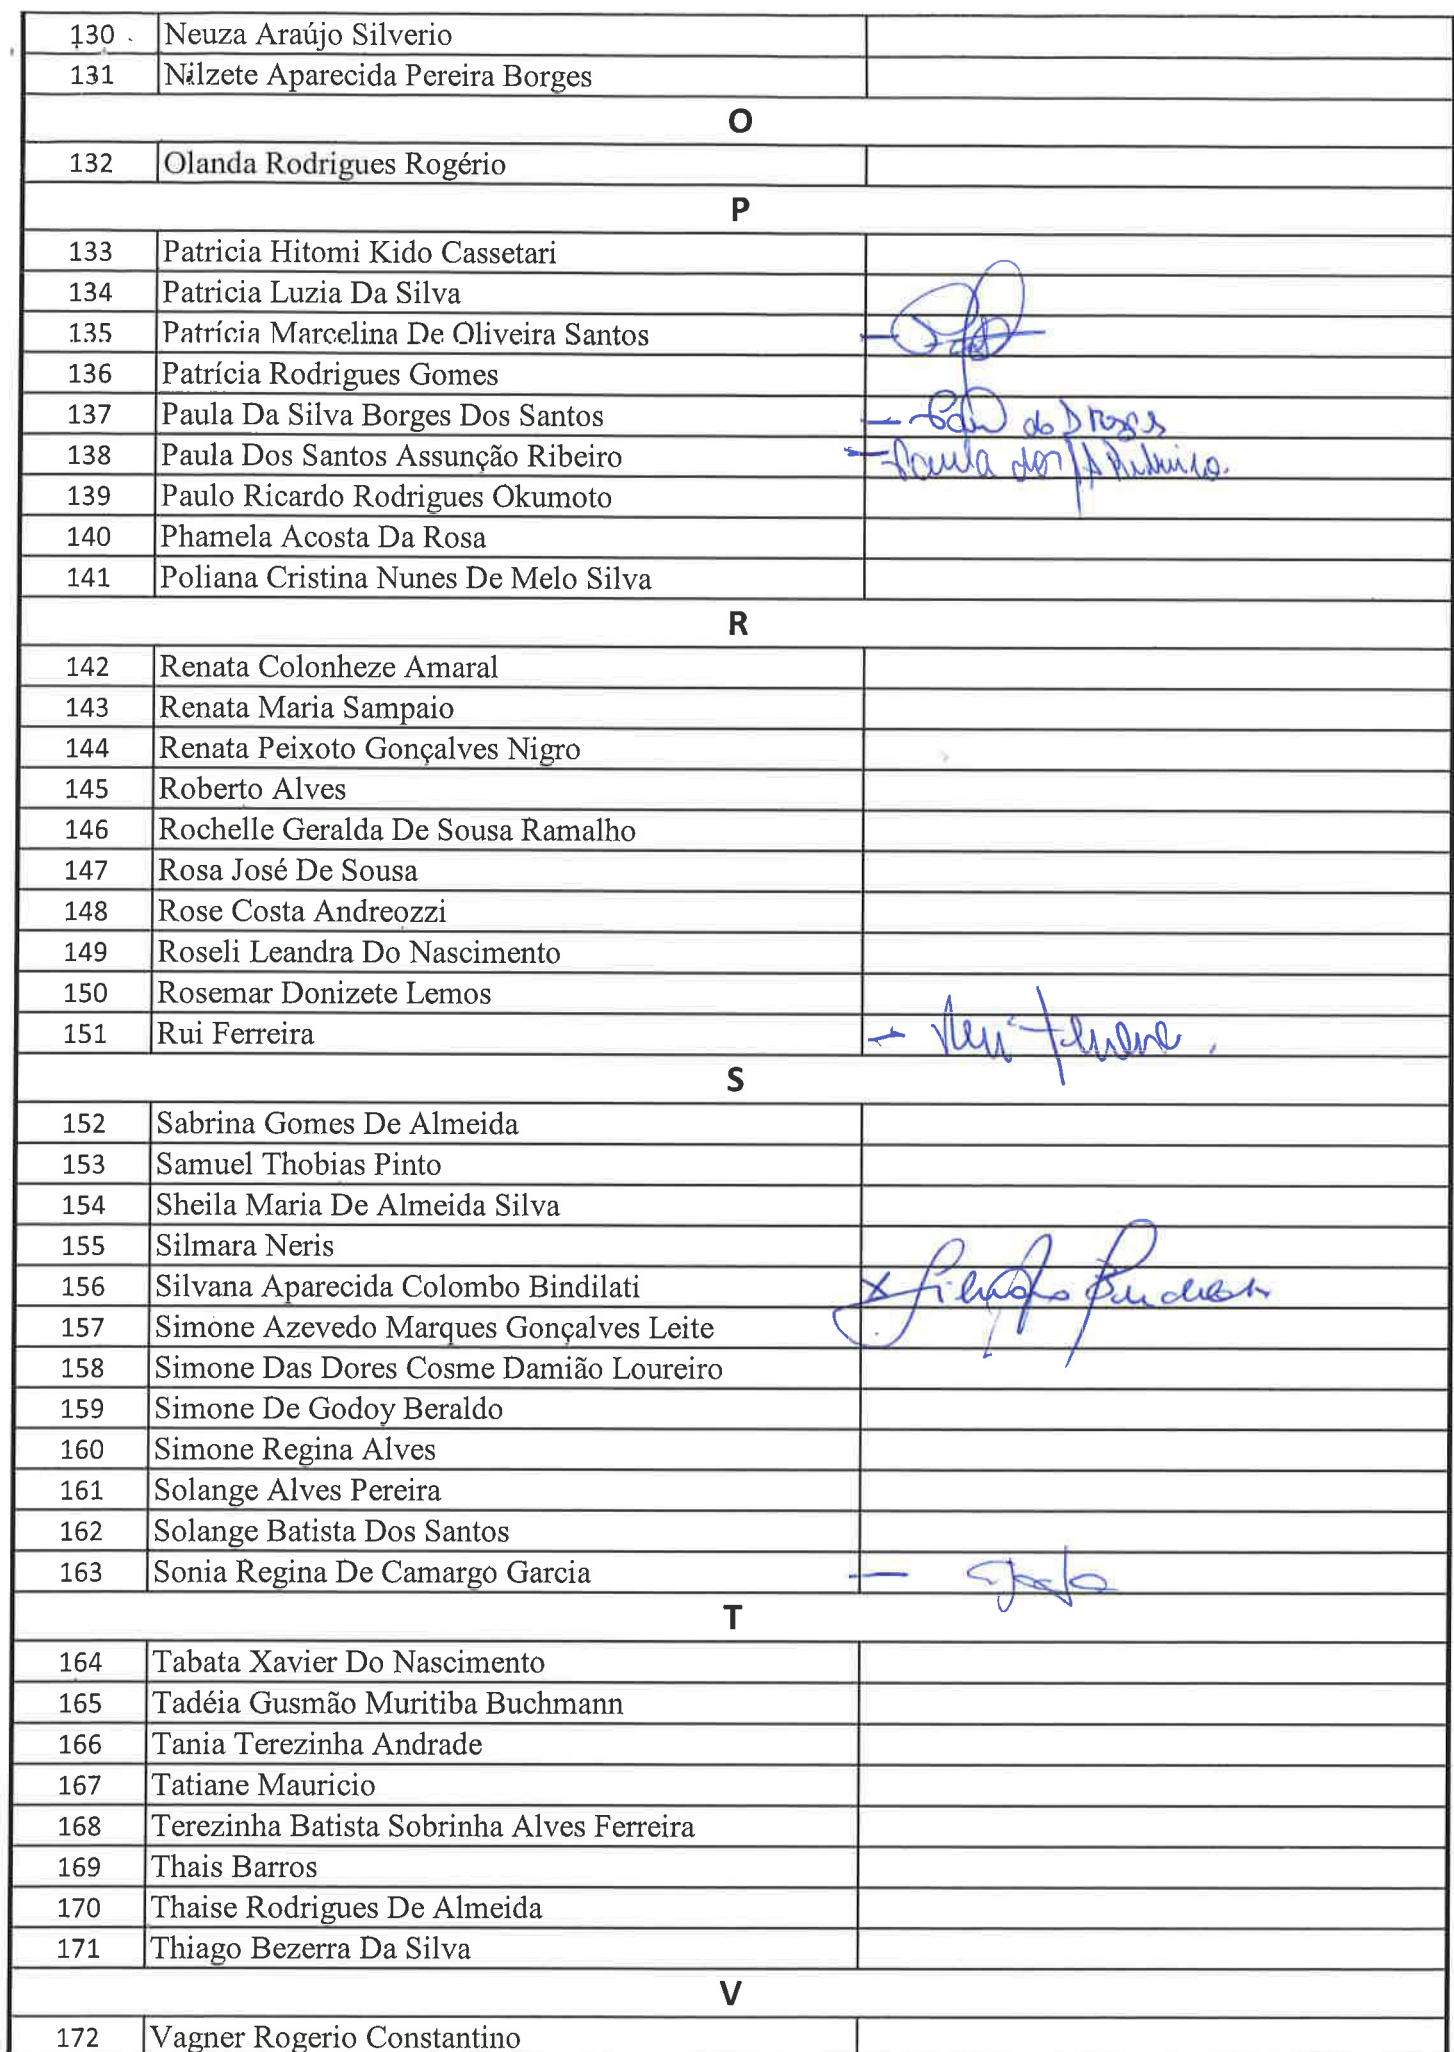 130 Neuza Araújo Silverio
131 Nilzete Aparecida Pereira Borges
O
132 Olanda Rodrigues Rogério
P
133 Patricia Hitomi Kido Cassetari
134 Patricia Luzia Da Silva
135 Patrícia Marcelina De Oliveira Santos
136 Patrícia Rodrigues Gomes
137 Paula Da Silva Borges Dos Santos
138 Paula Dos Santos Assunção Ribeiro Paula dos
139 Paulo Ricardo Rodrigues Okumoto
140 Phamela Acosta Da Rosa
141 Poliana Cristina Nunes De Melo Silva
R
142 Renata Colonheze Amaral
143 Renata Maria Sampaio
144 Renata Peixoto Gonçalves Nigro
145 Roberto Alves
146 Rochelle Geralda De Sousa Ramalho
147 Rosa José De Sousa
148 Rose Costa Andreozzi
149 Roseli Leandra Do Nascimento
150 Rosemar Donizete Lemos
151 Rui Ferreira Rui Ferreira
S
152 Sabrina Gomes De Almeida
153 Samuel Thobias Pinto
154 Sheila Maria De Almeida Silva
155 Silmara Neris
156 Silvana Aparecida Colombo Bindilati
157 Simone Azevedo Marques Gonçalves Leite
158 Simone Das Dores Cosme Damião Loureiro
159 Simone De Godoy Beraldo
160 Simone Regina Alves
161 Solange Alves Pereira
162 Solange Batista Dos Santos
163 Sonia Regina De Camargo Garcia
T
164 Tabata Xavier Do Nascimento
165 Tadéia Gusmão Muritiba Buchmann
166 Tania Terezinha Andrade
167 Tatiane Mauricio
168 Terezinha Batista Sobrinha Alves Ferreira
169 Thais Barros
170 Thaise Rodrigues De Almeida
171 Thiago Bezerra Da Silva
V
172 Vagner Rogerio Constantino